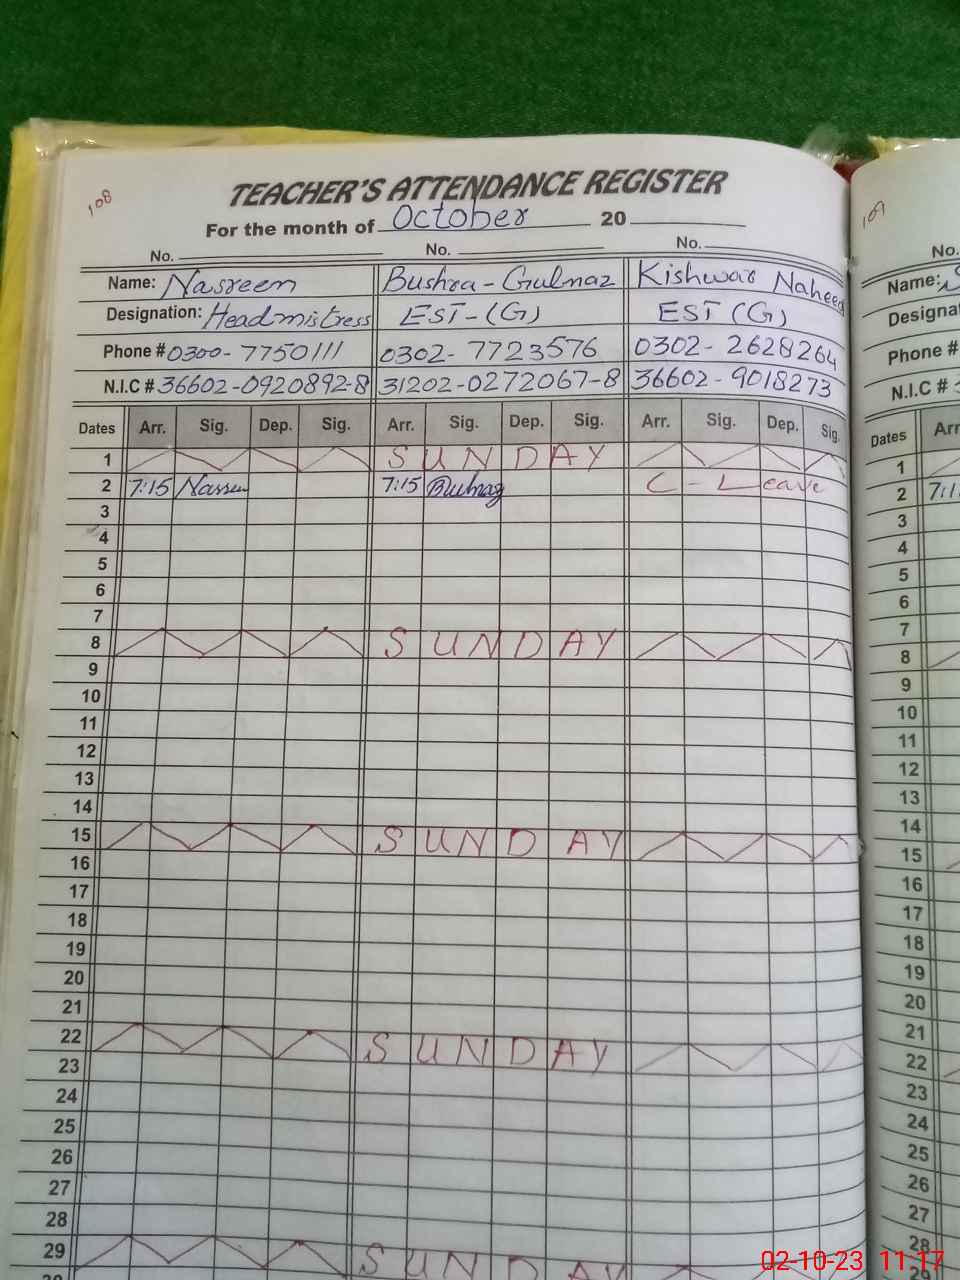 108
TEACHER'S ATTENDANCE REGISTER
For the month of October 20
No. No. No.
Name: Nasreen Bushra-Gulnaz Kishwar Naheed
Designation: Headmistress EST-(G) EST (G)
Phone # 0300-7750111 0302-7723576 0302-2628264
N.I.C # 36602-0920892-8 31202-0272067-8 36602-9018273
Dates Arr. Sig. Dep. Sig. Arr. Sig. Dep. Sig. Arr. Sig. Dep. Sig.
1 SUNDAY
2 7:15 7:15 Gulnaz C-Leave
3
4
5
6
7
8 SUNDAY
9
10
11
12
13
14
15 SUNDAY
16
17
18
19
20
21
22 SUNDAY
23
24
25
26
27
28
29 SUNDAY
30
No.
Name:
Phone #
N.I.C #
Dates
1
2
3
4
5
6
7
8
9
10
11
12
13
14
15
16
17
18
19
20
21
22
23
24
25
26
27
28
29
02-10-23 11:17